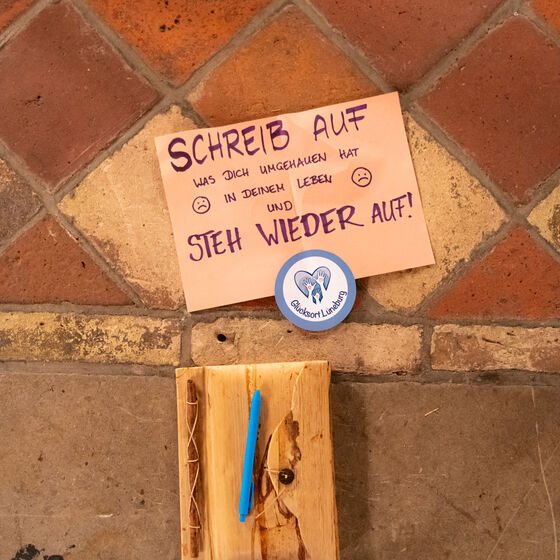 SCHREIB AUF
WAS DICH UMGEHAUEN HAT
IN DEINEM LEBEN
UND
STEH WIEDER AUF!
Glücksort Lüneburg